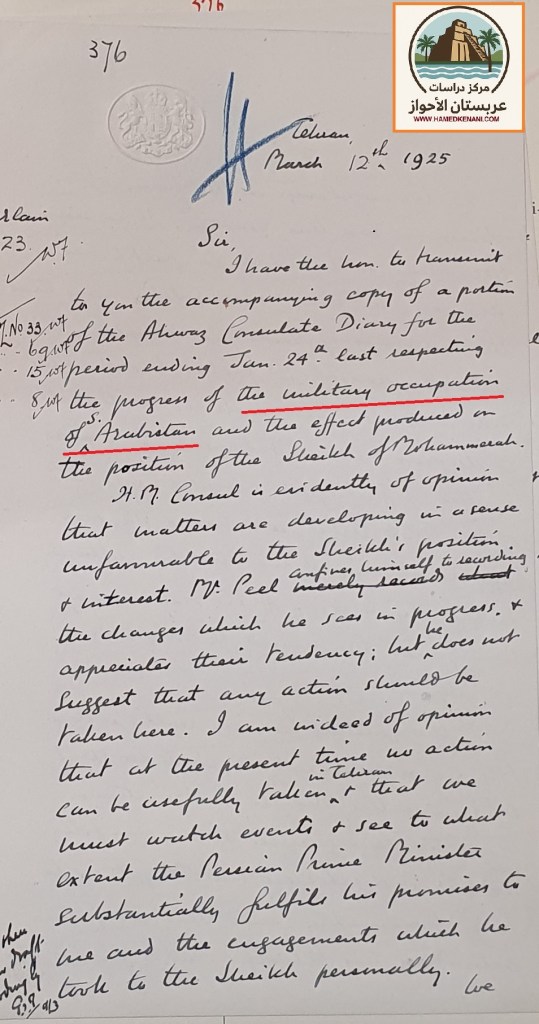 376
376
مركز دراسات
عربستان الأحواز
WWW.HAMEDKENANI.COM
Tehran,
March 12th 1925
23.
Sir,
I have the hon. to transmit
to you the accompanying copy of a portion
No 33
of the Ahwaz Consulate Diary for the
69
15
period ending Jan. 24th last respecting
8
the progress of the military occupation
of S. Arabistan and the effect produced on
the position of the Sheikh of Mohammerah.
H. M. Consul is evidently of opinion
that matters are developing in a sense
unfavourable to the Sheikh's position
& interest. Mr. Peel confines himself to recording merely records
the changes which he sees in progress, &
appreciates their tendency; but he does not
suggest that any action should be
taken here. I am indeed of opinion
that at the present time no action
can be usefully taken in Tehran & that we
must watch events & see to what
extent the Persian Prime Minister
substantially fulfils his promises to
me and the engagements which he
took to the Sheikh personally.
We